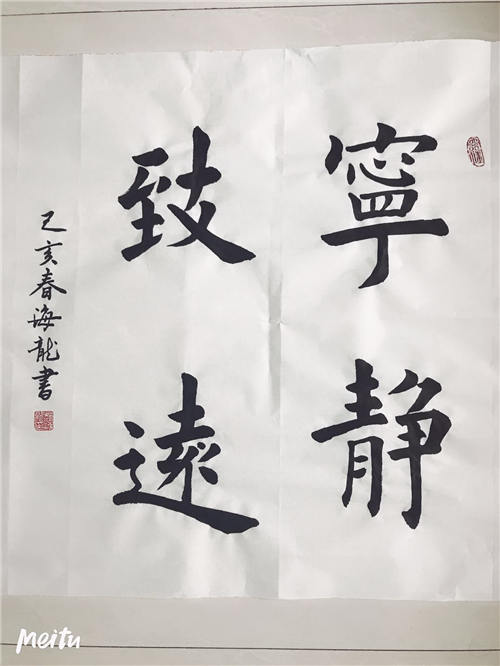 寧静
致遠
己亥春海龍書
meitu